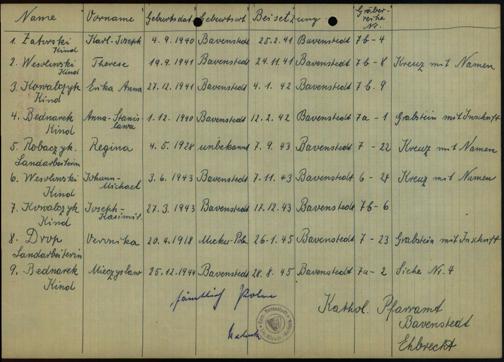 Name Vorname Geburtsdat. Geburtsort Beisetzung Gräber-reihe Nr.
1. Zatwrski Kind Karl-Joseph 4.9.1940 Bavenstedt 25.2.41 Bavenstedt 7b-4
2. Weslinski Kind Therese 14.9.1941 Bavenstedt 24.11.41 Bavenstedt 7b-8 Kreuz mit Namen
3. Kowalczyk Kind Erika Anna 27.12.1941 Bavenstedt 4.1.42 Bavenstedt 7b.9
4. Bednarek Kind Anna-Stanislawa 1.12.1940 Bavenstedt 12.2.42 Bavenstedt 7a-1 Grabstein mit Inschrift
5. Robaczyk. Landarbeiterin Regina 4.5.1928 unbekannt 7.9.43 Bavenstedt 7-22 Kreuz mit Namen
6. Weslinski Kind Johann-Michael 3.6.1943 Bavenstedt 7.11.43 Bavenstedt 6-24 Kreuz mit Namen
7. Kowalczyk Kind Joseph-Kasimir 27.3.1943 Bavenstedt 17.12.43 Bavenstedt 7b-6
8. Drop Landarbeiterin Veronika 20.4.1918 26.1.45 Bavenstedt 7-23 Grabstein mit Inschrift
9. Bednarek Kind Mieczyslaw 25.12.1944 Bavenstedt 28.8.45 Bavenstedt 7a-2 Siehe Nr. 4
sämtlich Polen
Kathol. Pfarramt
Bavenstedt
Ehbrecht